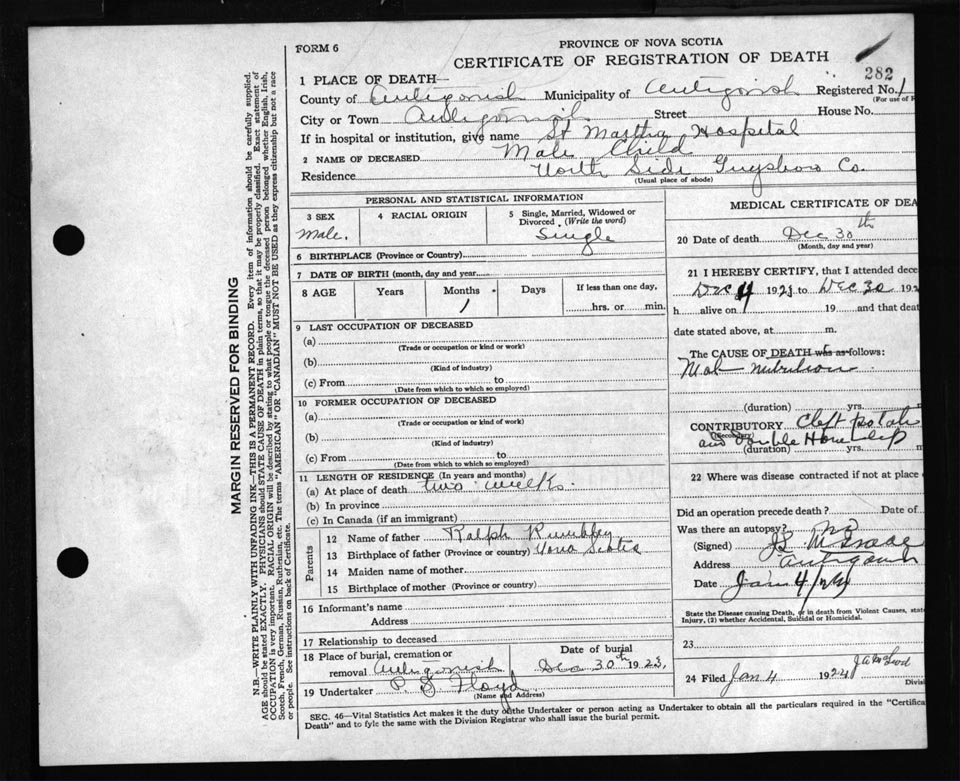 FORM 6
PROVINCE OF NOVA SCOTIA
CERTIFICATE OF REGISTRATION OF DEATH
282
1 PLACE OF DEATH—
County of Antigonish Municipality of Antigonish Registered No. 1
(For use of R
City or Town Antigonish Street House No.
If in hospital or institution, give name St Martha Hospital
2 NAME OF DECEASED Male Child
Residence North Side Guysboro Co.
(Usual place of abode)
PERSONAL AND STATISTICAL INFORMATION
3 SEX
4 RACIAL ORIGIN
5 Single, Married, Widowed or Divorced (Write the word)
Male.
Single
6 BIRTHPLACE (Province or Country)
7 DATE OF BIRTH (month, day and year)
8 AGE Years Months Days If less than one day,
1 hrs. or min.
9 LAST OCCUPATION OF DECEASED
(a)
(Trade or occupation or kind or work)
(b)
(Kind of industry)
(c) From to
(Date from which to which so employed)
10 FORMER OCCUPATION OF DECEASED
(a)
(Trade or occupation or kind of work)
(b)
(Kind of industry)
(c) From to
(Date from which to which so employed)
11 LENGTH OF RESIDENCE (In years and months)
(a) At place of death two weeks.
(b) In province
(c) In Canada (if an immigrant)
Parents
12 Name of father Ralph Rumbley
13 Birthplace of father (Province or country) Nova Scotia
14 Maiden name of mother
15 Birthplace of mother (Province or country)
16 Informant's name
Address
17 Relationship to deceased
18 Place of burial, cremation or removal Antigonish
Date of burial
Dec 30th 1923.
19 Undertaker P. S. Floyd
(Name and Address)
SEC. 46—Vital Statistics Act makes it the duty of the Undertaker or person acting as Undertaker to obtain all the particulars required in the "Certifica
Death" and to fyle the same with the Division Registrar who shall issue the burial permit.
MEDICAL CERTIFICATE OF DEA
20 Date of death Dec 30th
(Month, day and year)
21 I HEREBY CERTIFY, that I attended dece
Dec 1923 to Dec 30 192
h alive on 19 and that deat
date stated above, at m.
The CAUSE OF DEATH was as follows:
Mal nutrition
(duration) yrs.
CONTRIBUTORY Cleft palate
(Secondary)
and Double Harelip
(duration) yrs. m
22 Where was disease contracted if not at place
Did an operation precede death? Date of
Was there an autopsy? no
(Signed)
Address Antigonish
Date Jan 4/24
State the Disease causing Death, or in death from Violent Causes, stat
Injury, (2) whether Accidental, Suicidal or Homicidal.
23
24 Filed Jan 4 1924
Divisi
MARGIN RESERVED FOR BINDING
N.B.—WRITE PLAINLY WITH UNFADING INK—THIS IS A PERMANENT RECORD. Every item of information should be carefully supplied.
AGE should be stated EXACTLY. PHYSICIANS should STATE CAUSE OF DEATH in plain terms, so that it may be properly classified. Exact statement of
OCCUPATION is very important. RACIAL ORIGIN will be described by stating to what people or tongue the deceased person belonged, whether English, Irish,
Scotch, French, German, Russian, Ruthenian, etc. The terms "AMERICAN" OR "CANADIAN" MUST NOT BE USED as they express citizenship but not a race
or people. See instructions on back of Certificate.